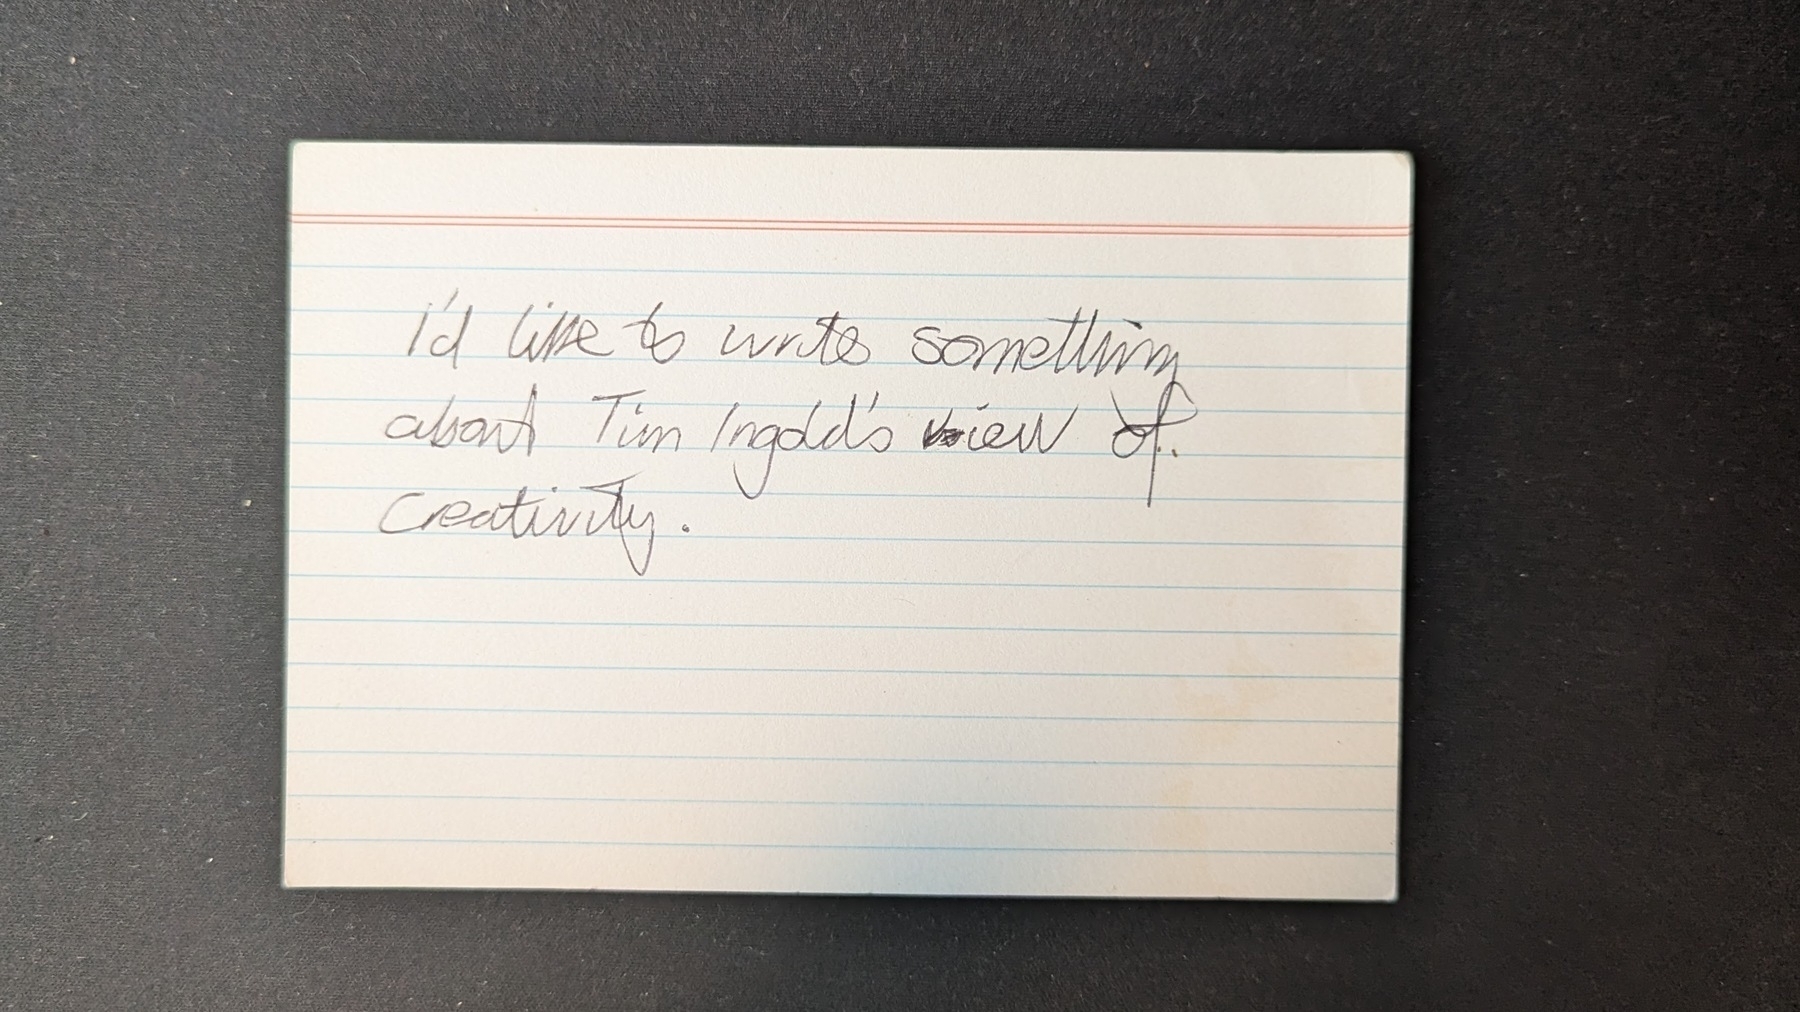 I'd like to write something
about Tim Ingold's view of
creativity.